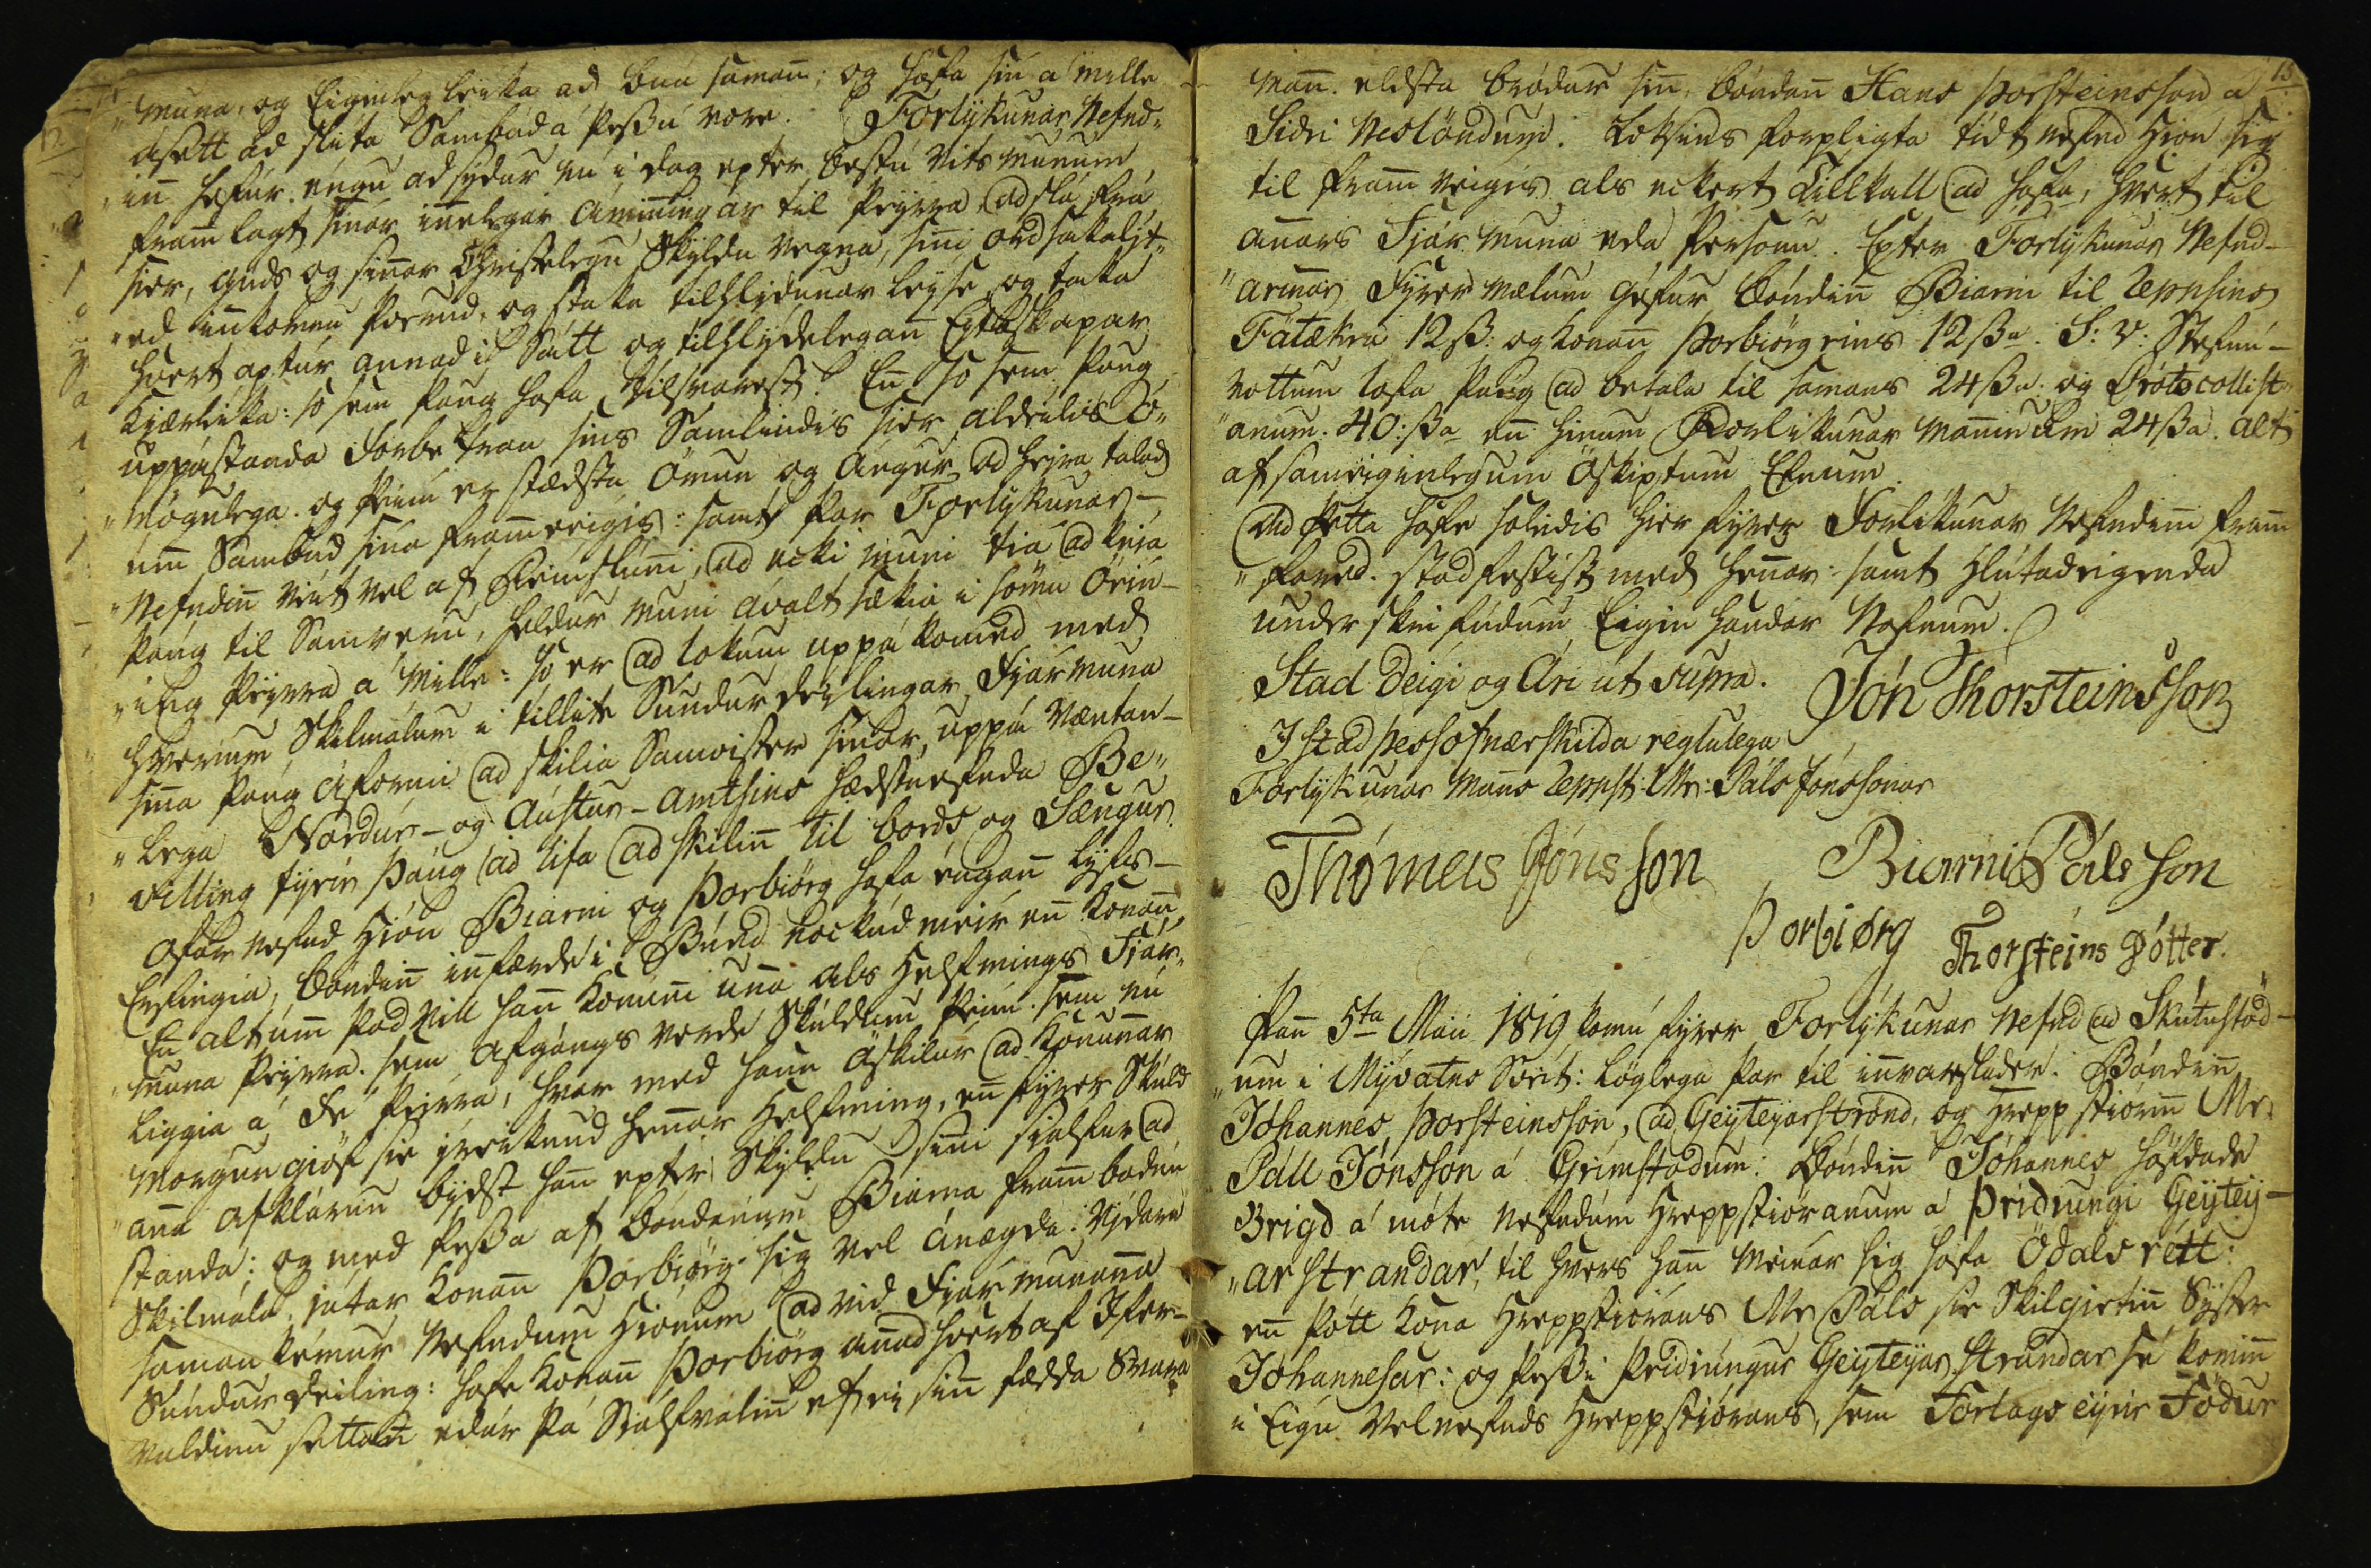 12
„muna, og Eiginlegleika ad bua saman; og hafa sin á mille
ásett ad slíta Sambúd á þessu vore. Forlýkunar Nefnd„
„in hefur eingu ad sydur nú i dag epter bestu vitsmunum
framlagt sinar innelegar áminningar til þeyrra, ad slá frá
sier, Guds og sinnar Christelegu Skyldu vegna, sinni ordsakalýt„
„ed innkomnu þremed, og staka tilhlydunar leyse, og taka
hvert aptur annad i Sátt og tilhlydelegann Egtaskapar
Kjærleika: so sem þaug hafa tilsvarest. En so sem þaug
uppástanda Forbetran sins Samlindis sier aldeilis ó„
„mögulega. og þeim er stædsta Ömun og Angur ad heyra talad
um Sambúd sina frammveigis: samt þar Forlýkunar-
„Nefndin veit vel af Reinslunni, ad ecki muni tiá ad knia
þaug til Samveru, heldur muni ávalt sækia i sömu Óein-
„ing þeyrra á mille: so er ad lokum uppá komid med
hverium Skilmálum i tillite Sundurdeilingar Fjármuna
sinna þaug áformi ad skilia Samvister sinar, uppá væntan-
„lega Nordur- og Austur-Amtsins hædstnefnda Be„
villing fyrir þaug ad lifa ad skilin til bords og Sængur.
Ofarnefnd Hión Biarni og Þorbiörg hafa eingann Lyfs-
Erfingia, bóndinn innfærde i Búid nockud meir enn Konan,
En altum þad vill hann Konunni unna als Helfnings Fjár„
„muna þeyrra. sem afgángs verda Skuldum þeim. sem nú
liggia á Fe þeirra, hvar med hann áskilur ad Konunnar
Morgungiöf sie ireiknud hennar Helfning, en fyrer Skuld
„anna afklárun bydst hann epter Skyldu sinni sialfur ad
standa: og med þessa af bóndanum Biarna frambodnu
Skilmála, játar Konan Þorbiörg sig vel ánægda. Vydare
samankémur Nefndum Hiónum ad vid Fjármunanna
Sundurdeiling: hafe Konan Þorbiörg annad hvert af Yfer-
valdinu settann edur þá Sialfvalinn ef ei sinn fædda Svara
13
mann. eldsta bródur sinn, bóndan Hans Þorsteinsson á
Sidri Neslöndum. Loksins forpligta tidtnefnd Hión sig
til framveigis als eckert Tillkall ad hafa, hvert til
annars Fjármuna eda Personu. Epter Forlýkunar Nefnd-
„arinnar Fyrermælum géfur bóndinn Biarni til Reppsins
Fátækra 12 ß: og Konan Þorbiörg eins 12 ßa. S: v: Stefnu-
vottum lofa þaug ad betala til samans 24 ßa. og Protocollist„
„anum. 40: ßa en hinum Forlikunar Manninum 24 ßa. alt
af sameiginlegum óskiptum Efnum.
Ad þetta hafe soleidis hier fyrer Forlikunar Nefndinni fram
„fared. stadfestist med hennar: samt Hlutadeigenda
underskrifudum Eigin handar Nöfnum.
Stad Deigi og Ári út supra.
Jón Thorsteinsson
I stad þess ofnærskilda reglulega
Forlýkunar Manns Reppst: Mr: Páls Jónssonar
Thómas Jónsson
Biarni Pálsson
Þorbiørg Thorsteins Dótter.
Þann 5ta Maii 1819 komu fyrer Forlýkunar Nefnd ad Skútustöd-
„um i Mývatns Sveit: löglega þar til innvarslader. Bóndinn
Jóhannes Þorsteinsson, ad Geyteyarströnd, og Hreppstiorinn Mr
Páll Jónsson á Grimstödum: bóndinn Jóhannes höfdade
Brigd á móte nefndum Hreppstióranum á Þridiungi Geytey-
„arstrandar, til hvers hann meinar sig hafa Ódals rétt:
en þótt Kona Hreppstiórans Mr Páls sie Skilgietin Syster
Jóhannesar: og þesse þridiungur Geyteyar Strandar sé kominn
i Eigu Velnefnds Hreppstiórans, sem Forlags eyrir Födur